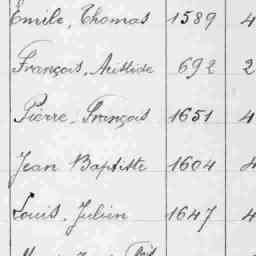 Emile, Thomas 1589 4
François, Aristide 692 2
Pierre, François 1651 4
Jean Baptiste 1604 4
Louis, Julien 1647 4